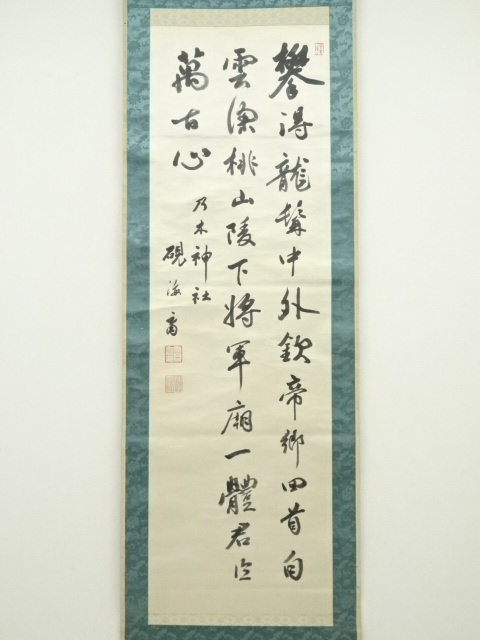 攀得龍髯中外欽帝鄉回首白
雲深桃山陵下將軍廟一體君臣
萬古心
乃木神社
硯海